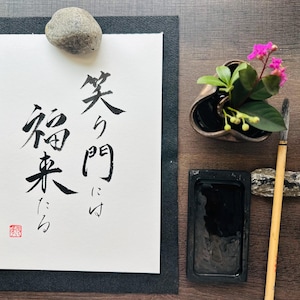 笑り門には
福来たる